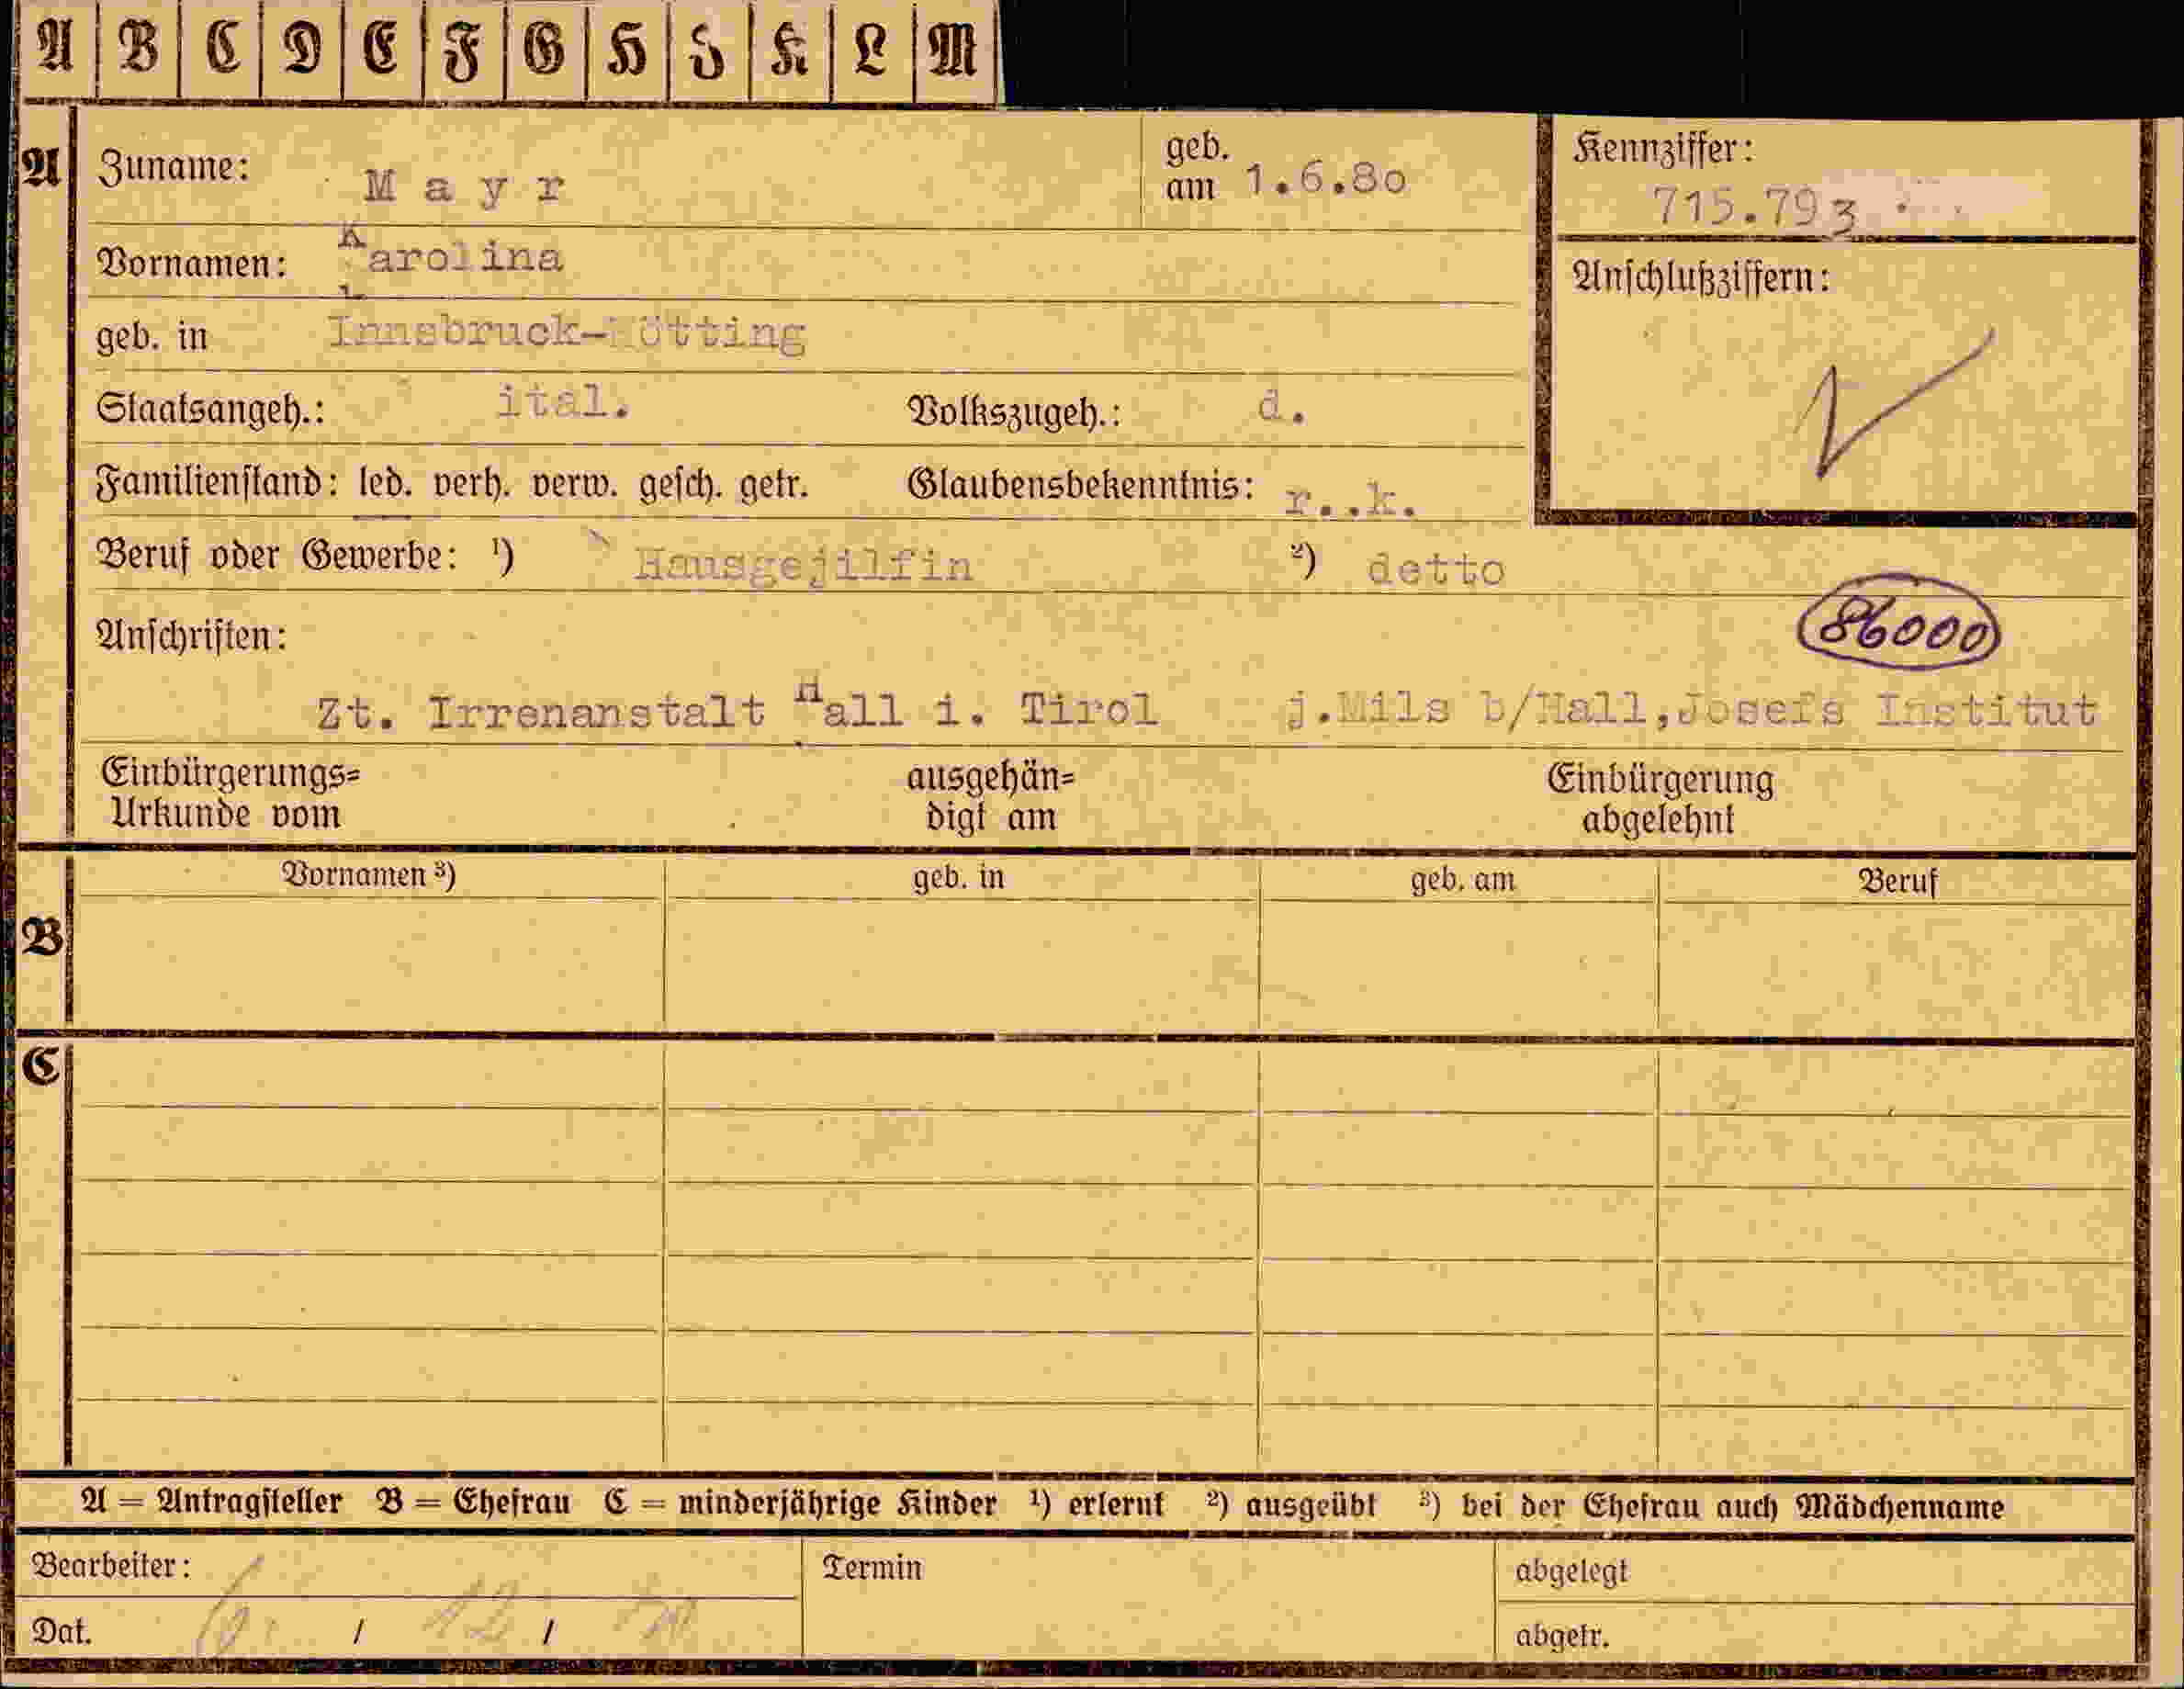 A B C D E F G H J K L M
A Zuname: Mayr geb. am 1.6.80 Kennziffer: 715.793
Vornamen: Karolina Anschlußziffern:
geb. in Innsbruck-Hötting
Staatsangeh.: ital. Volkszugeh.: d.
Familienstand: led. verh. verw. gesch. getr. Glaubensbekenntnis: r..k.
Beruf oder Gewerbe: ¹) Hausgejilfin ²) detto
Anschriften: 86000
Zt. Irrenanstalt Hall i. Tirol j.Mils b/Hall,Josefs Institut
Einbürgerungs= ausgehän= Einbürgerung
Urkunde vom digt am abgelehnt
Vornamen ³) geb. in geb. am Beruf
B
C
A = Antragsteller B = Ehefrau C = minderjährige Kinder ¹) erlernt ²) ausgeübt ³) bei der Ehefrau auch Mädchenname
Bearbeiter: Termin abgelegt
Dat. / 12 / abgetr.